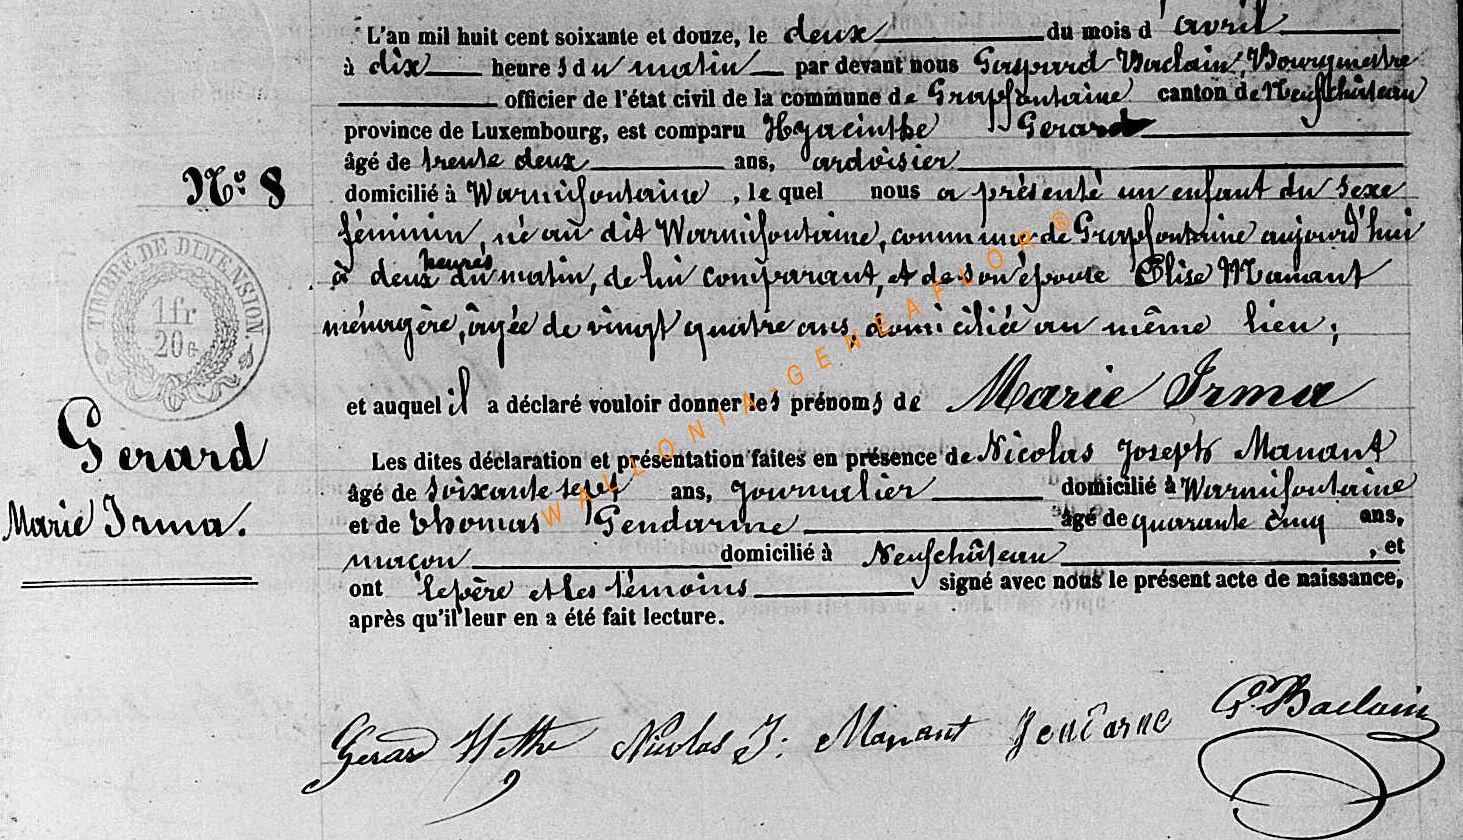 L'an mil huit cent soixante et douze, le deux du mois d'avril
à dix heures du matin par devant nous Gaspard Baclain, Bourgmestre
officier de l'état civil de la commune de Grapfontaine canton de Neufchâteau
province de Luxembourg, est comparu Hyacinthe Gerard
âgé de trente deux ans, ardoisier
N° 8
domicilié à Warmifontaine, le quel nous a présenté un enfant du sexe
féminin, né au dit Warmifontaine, commune de Grapfontaine aujourd'hui
à deux heures du matin, de lui comparant, et de son épouse Elise Manant
ménagère, âgée de vingt quatre ans, domiciliée au même lieu,
TIMBRE DE DIMENSION.
1 fr
20 c
et auquel il a déclaré vouloir donner les prénoms de Marie Irma
Gerard
Marie Irma.
Les dites déclaration et présentation faites en présence de Nicolas Joseph Manant
âgé de soixante sept ans, journalier domicilié à Warmifontaine
et de Thomas Gendarme âgé de quarante cinq ans,
maçon domicilié à Neufchâteau, et
ont le père et les témoins signé avec nous le présent acte de naissance,
après qu'il leur en a été fait lecture.
WALLONIA-GENEAFLOR®
Gerard Hthe Nicolas J: Manant Jendarne G. Baclain